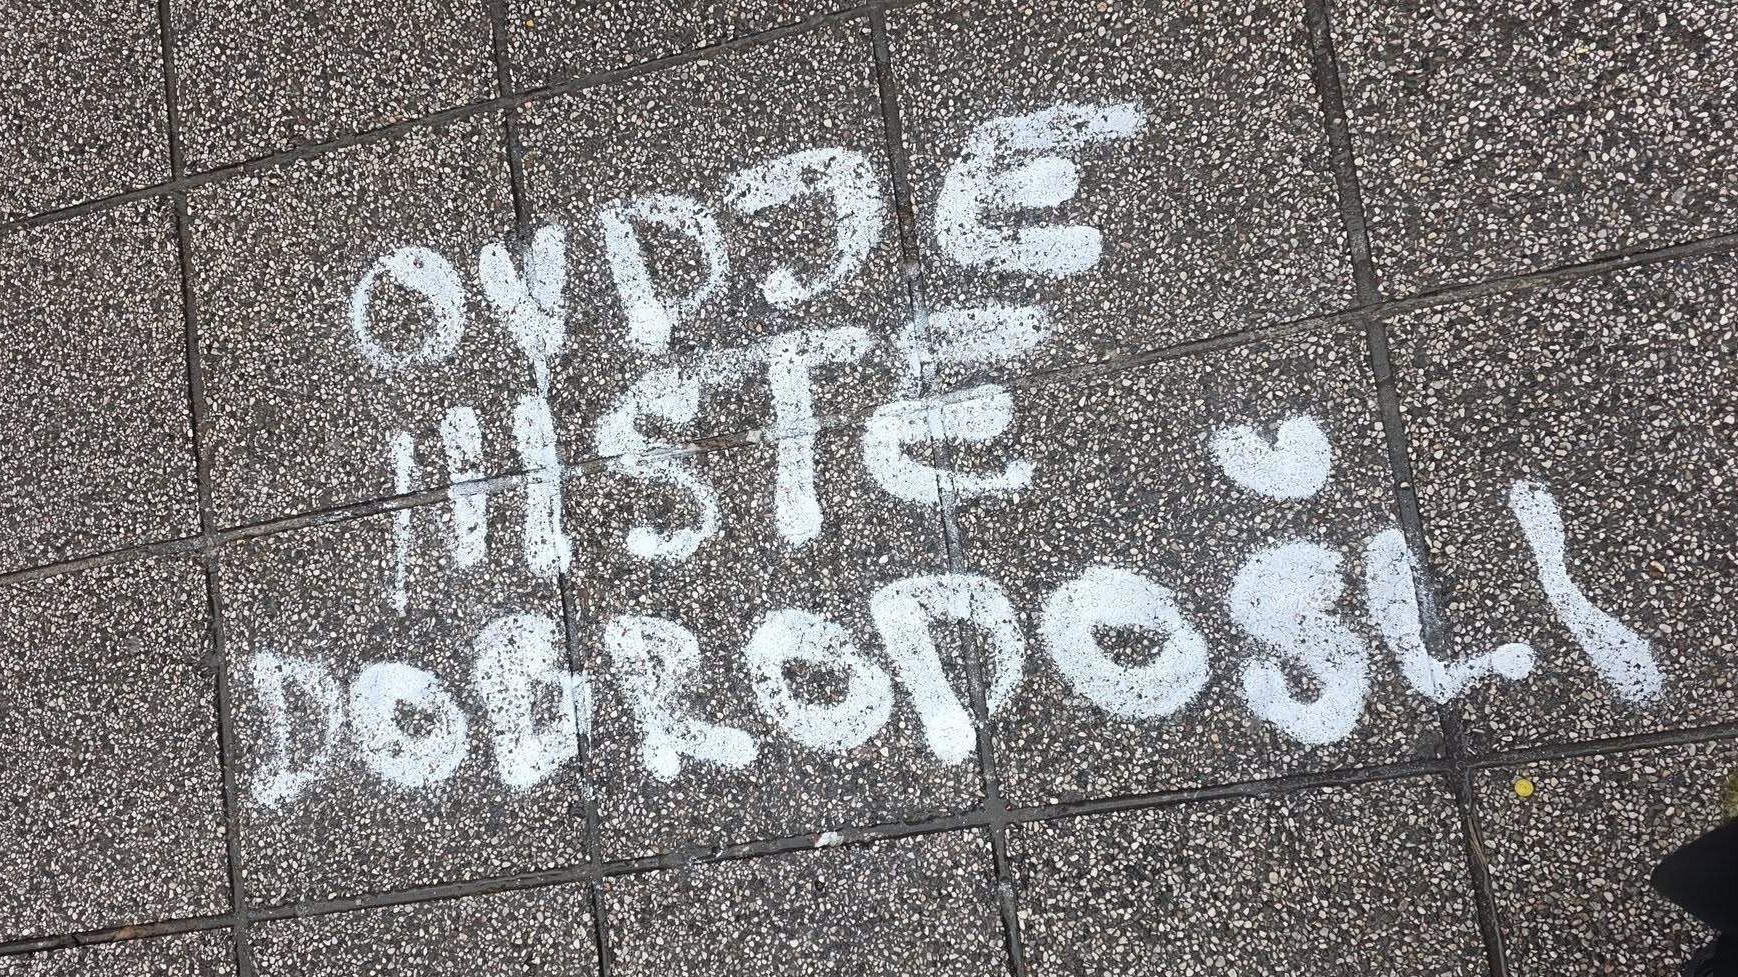 OVDJE
NISTE
DOBRODOŠLI